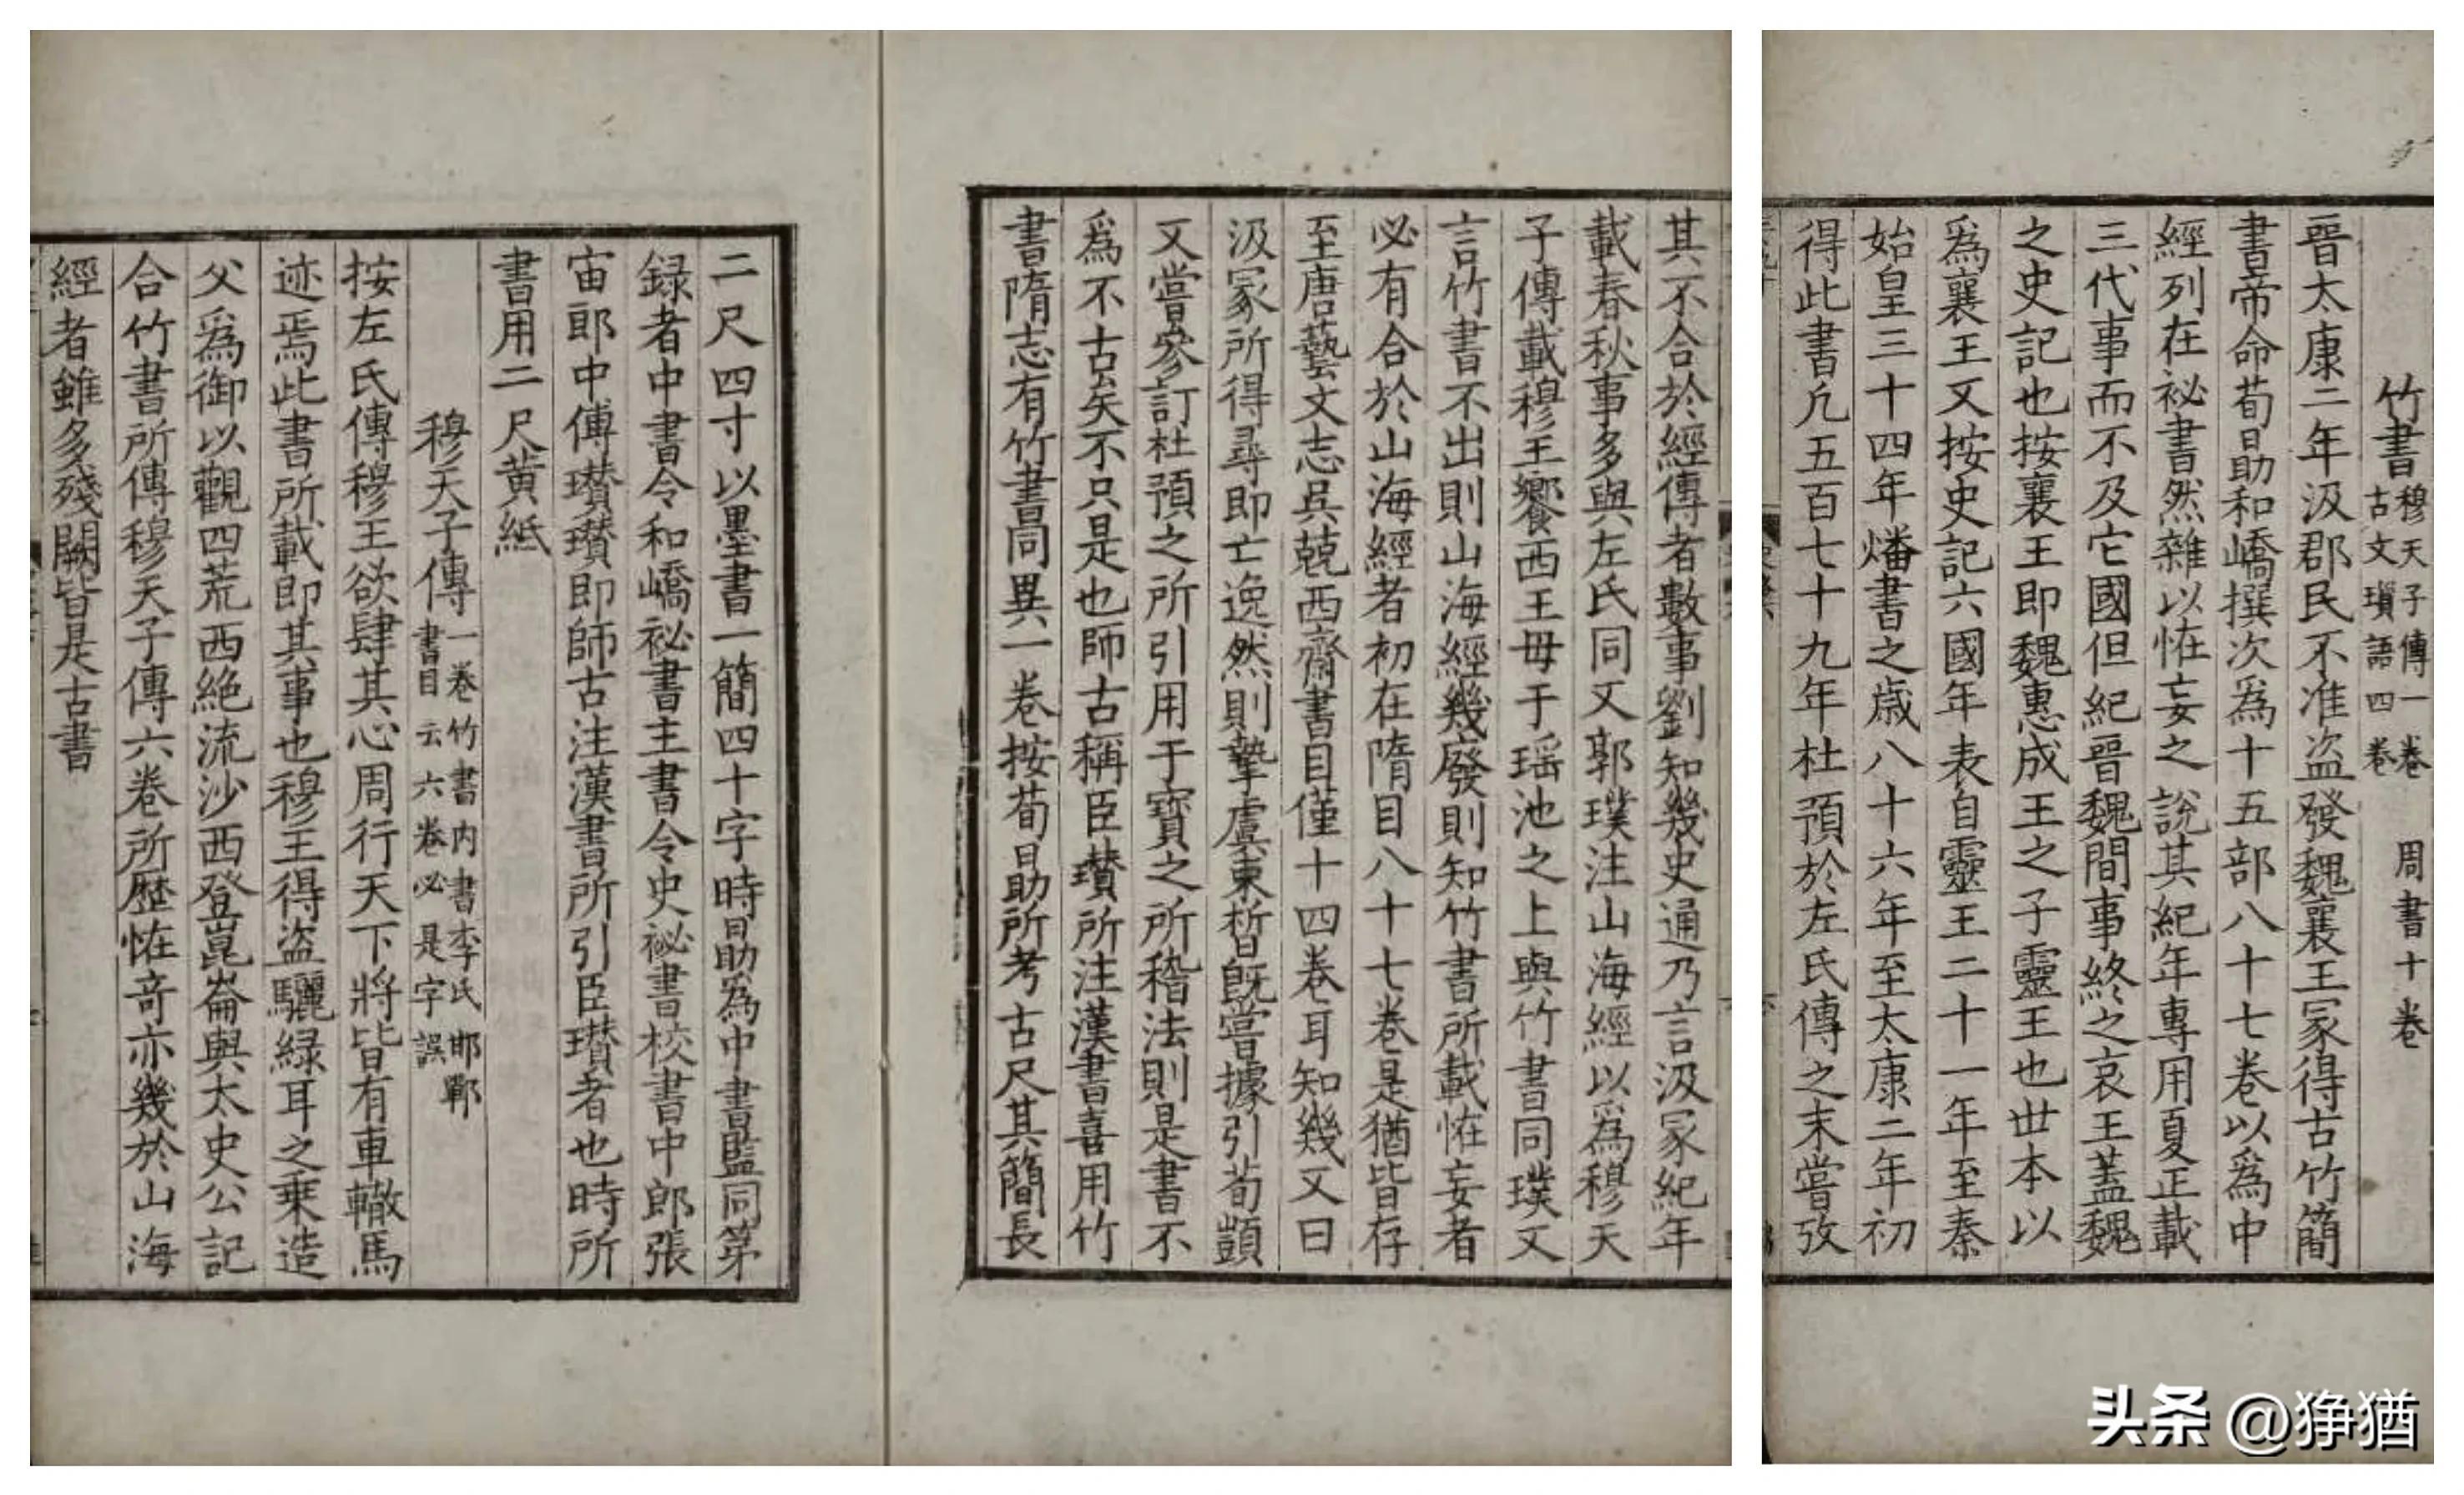 竹書穆天子傳一卷古文瑣語四卷 周書十卷
晉太康二年汲郡民不准盜發魏襄王冢得古竹簡
書帝命荀勗和嶠撰次為十五部八十七卷以為中
經列在祕書然雜以恠妄之說其紀年專用夏正載
三代事而不及它國但紀晉魏間事終之哀王蓋魏
之史記也按襄王即魏惠成王之子靈王也世本以
為襄王又按史記六國年表自靈王二十一年至秦
始皇三十四年燔書之歳八十六年至太康二年初
得此書凡五百七十九年杜預於左氏傳之末嘗攷
其不合於經傳者數事劉知幾史通乃言汲冢紀年
載春秋事多與左氏同又郭璞注山海經以為穆天
子傳載穆王饗西王母于瑶池之上與竹書同璞又
言竹書不出則山海經幾廢則知竹書所載恠妄者
必有合於山海經者初在隋目八十七卷是猶皆存
至唐藝文志吳兢西齋書目僅十四卷耳知幾又曰
汲冢所得尋即亡逸然則摯虞束晳旣嘗據引荀顗
又嘗參訂杜預之所引用于寶之所稽法則是書不
為不古矣不只是也師古稱臣瓚所注漢書喜用竹
書隋志有竹書同異一卷按荀勗所考古尺其簡長
二尺四寸以墨書一簡四十字時勗為中書監同第
録者中書令和嶠祕書主書令史祕書校書中郎張
宙郎中傅瓚瓚即師古注漢書所引臣瓚者也時所
書用二尺黃紙
穆天子傳一卷竹書内書李氏邯鄲書目云六卷必是字誤
按左氏傳穆王欲肆其心周行天下將皆有車轍馬
迹焉此書所載即其事也穆王得盜驪緑耳之乗造
父為御以觀四荒西絶流沙西登崑崙與太史公記
合竹書所傳穆天子傳六卷所歷恠竒亦幾於山海
經者雖多殘闕皆是古書
头条 @狰猶